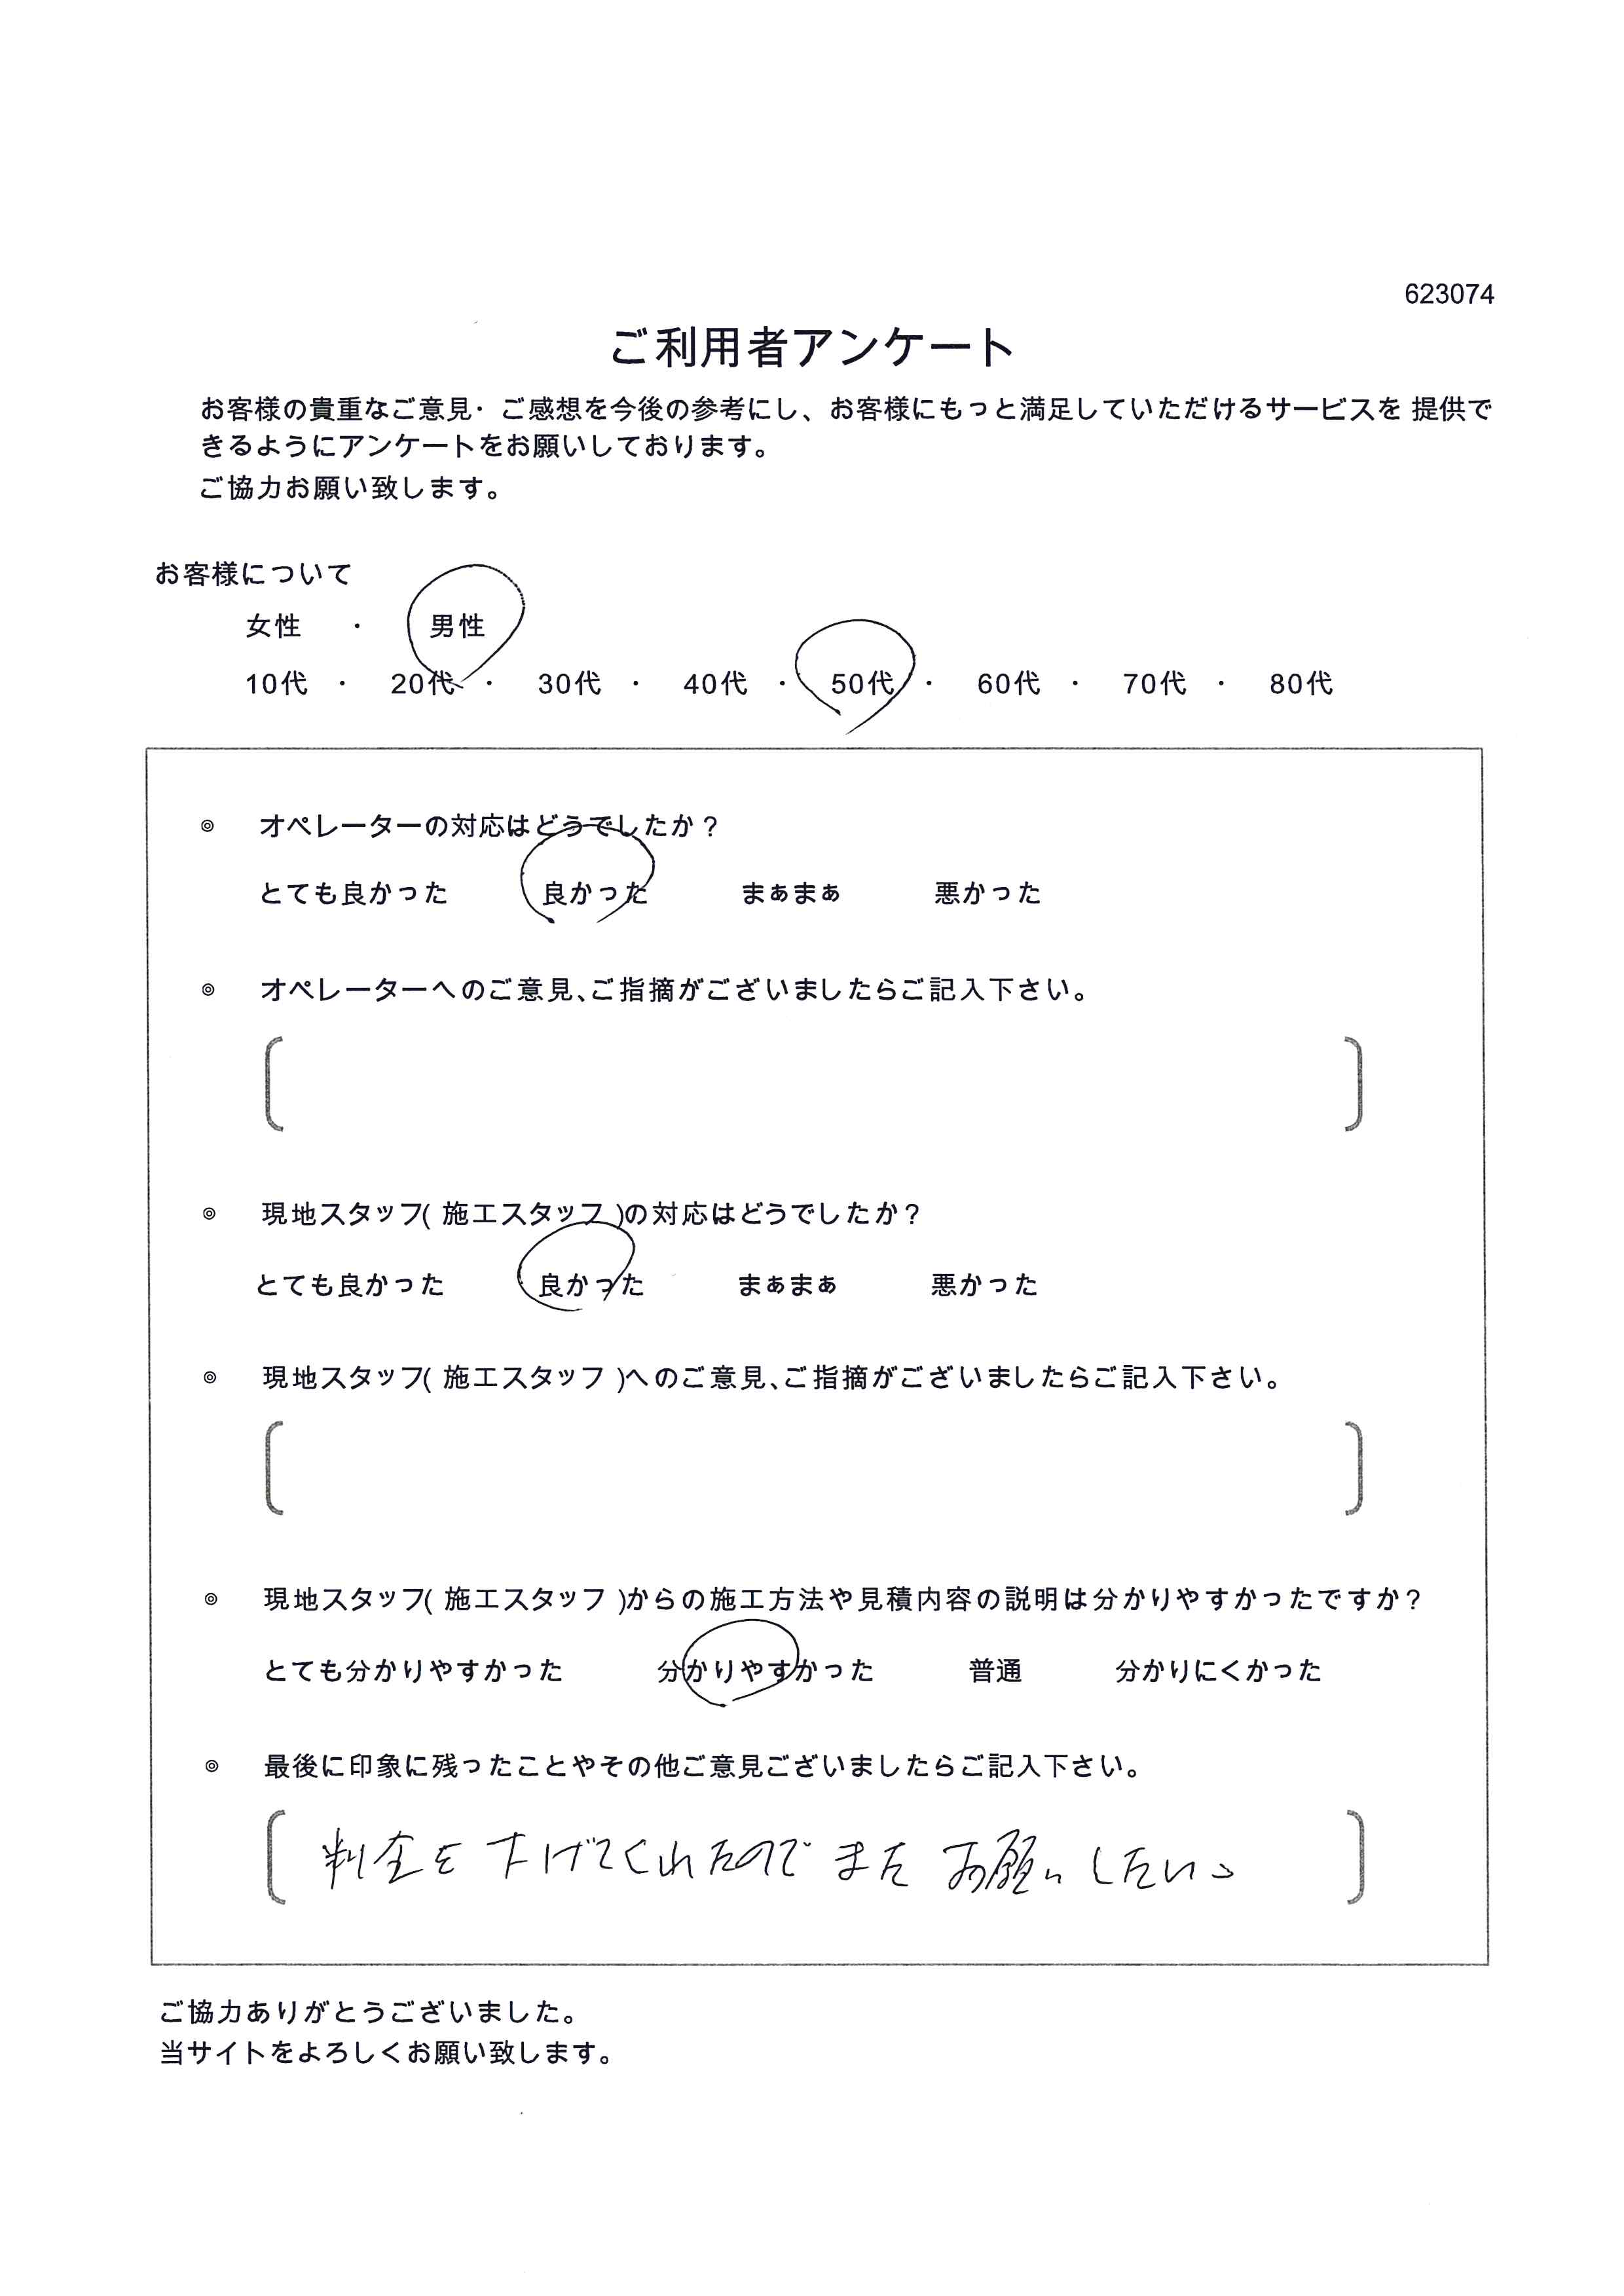 623074
ご利用者アンケート
お客様の貴重なご意見・ご感想を今後の参考にし、お客様にもっと満足していただけるサービスを 提供で
きるようにアンケートをお願いしております。
ご協力お願い致します。
お客様について
女性 ・ 男性
10代 ・ 20代 ・ 30代 ・ 40代 ・ 50代 ・ 60代 ・ 70代 ・ 80代
◎ オペレーターの対応はどうでしたか？
とても良かった 良かった まぁまぁ 悪かった
◎ オペレーターへのご意見、ご指摘がございましたらご記入下さい。
◎ 現地スタッフ( 施工スタッフ )の対応はどうでしたか？
とても良かった 良かった まぁまぁ 悪かった
◎ 現地スタッフ( 施工スタッフ )へのご意見、ご指摘がございましたらご記入下さい。
◎ 現地スタッフ( 施工スタッフ )からの施工方法や見積内容の説明は分かりやすかったですか？
とても分かりやすかった 分かりやすかった 普通 分かりにくかった
◎ 最後に印象に残ったことやその他ご意見ございましたらご記入下さい。
料金を下げてくれたのでまたお願いしたい。
ご協力ありがとうございました。
当サイトをよろしくお願い致します。